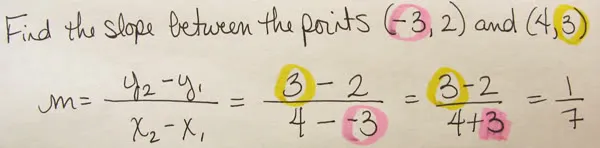 Find the slope between the points (-3, 2) and (4, 3)
m = (y₂ - y₁)/(x₂ - x₁) = (3 - 2)/(4 - -3) = (3 - 2)/(4 + 3) = 1/7